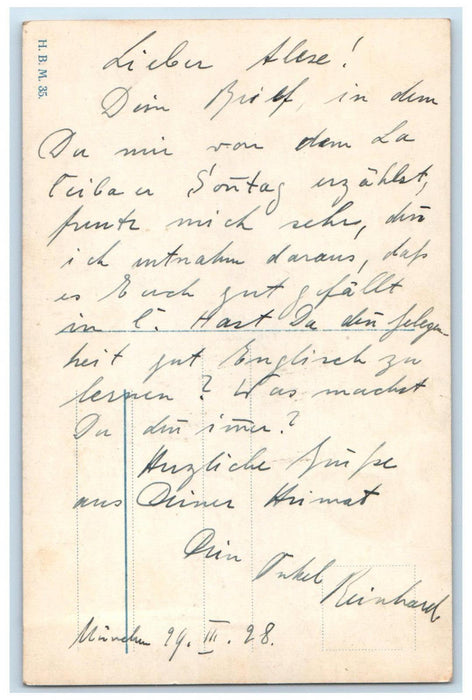 H. B. M. 35.
Lieber Alex!
Dein Brief, in dem
Du mir von dem La
er Sontag erzählst,
freute mich sehr, den
ich entnahm daraus, daß
es Euch gut gefällt
in C. Hast Du den Gelegen-
heit gut Englisch zu
lernen? Was machst
Du den imer?
Herzliche Grüße
aus Deiner Heimat
Dein
Onkel Reinhard
München 29. III. 28.